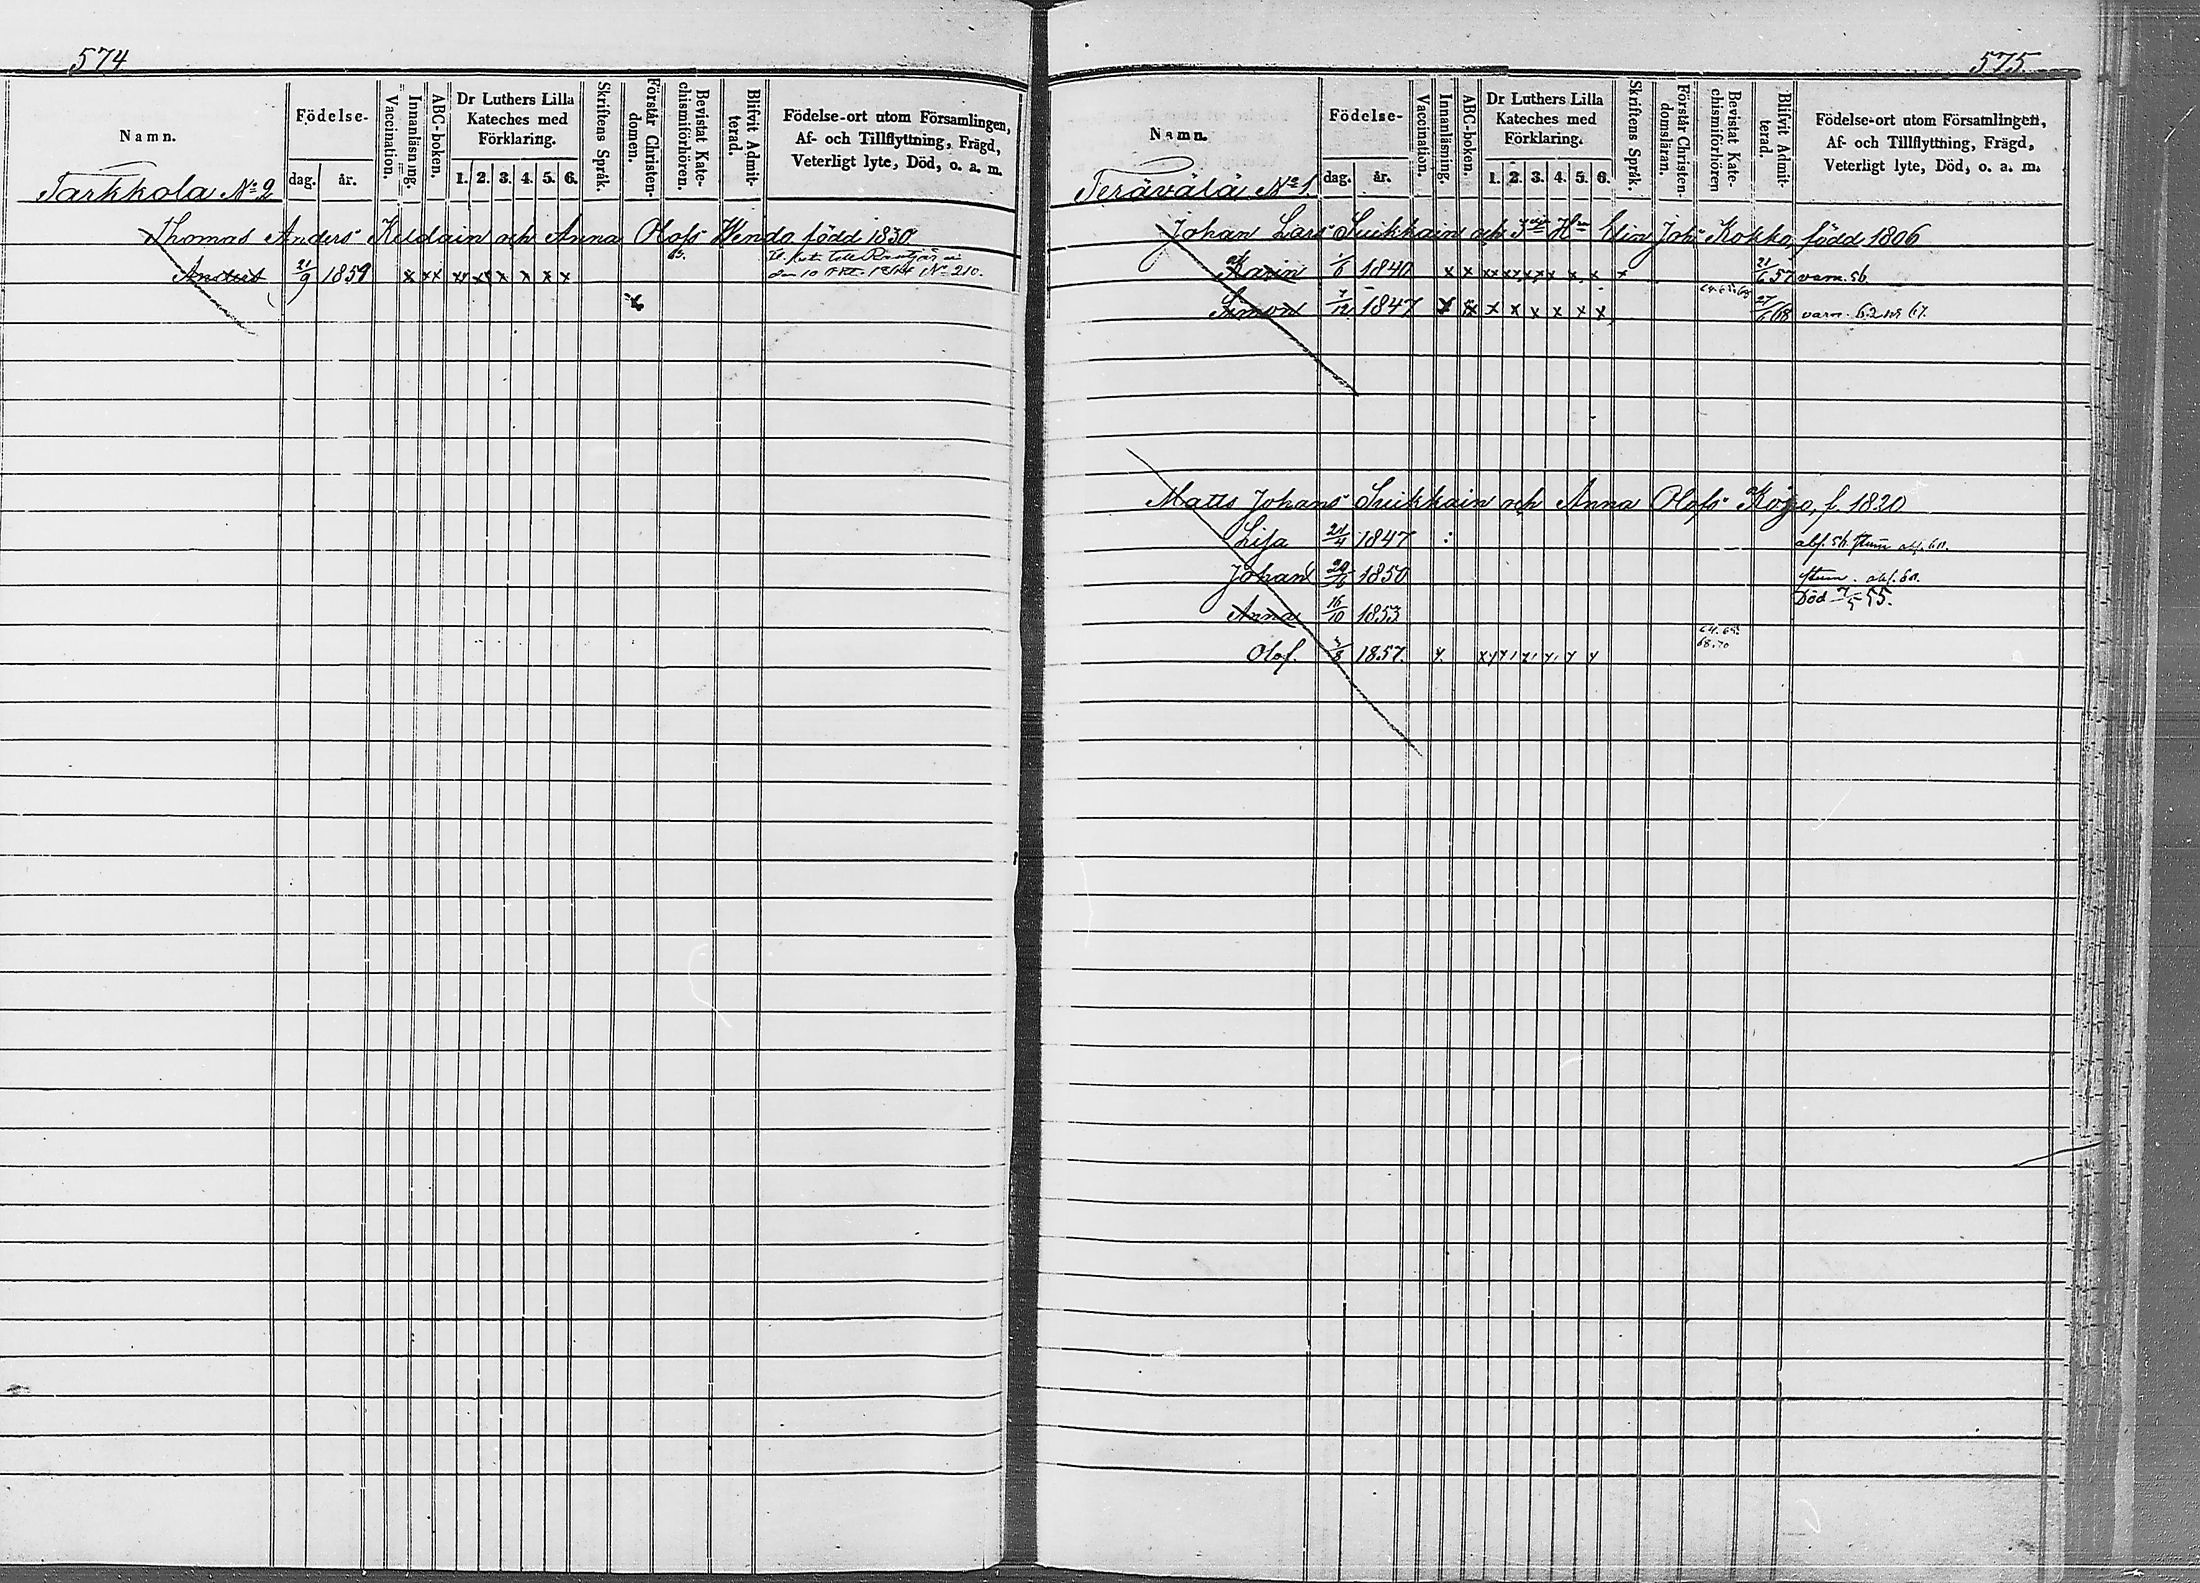 574
Namn.
Födelse-
dag. år.
Vaccination.
Innanläsning.
ABC-boken.
Dr Luthers Lilla
Kateches med
Förklaring.
1. 2. 3. 4. 5. 6.
Skriftens Språk.
Förstår Christen-
domen.
Bevistat Kate-
chismiförhören.
Blifvit Admit-
terad.
Födelse-ort utom Församlingen,
Af- och Tillflyttning, Frägd,
Veterligt lyte, Död, o. a. m.
Tarkkola No 2
Thomas Anders Keldain och Anna Olofs Wendo född 1830.
65.
den 10 1864 No 210.
Anders 21/9 1859 x xx xx xx x x x x
x
575
Namn.
Födelse-
dag. år.
Vaccination.
Innanläsning.
ABC-boken.
Dr Luthers Lilla
Kateches med
Förklaring.
1. 2. 3. 4. 5. 6.
Skriftens Språk.
Förstår Christen-
domsläran.
Bevistat Kate-
chismiförhören
Blifvit Admit-
terad.
Födelse-ort utom Församlingen,
Af- och Tillflyttning, Frägd,
Veterligt lyte, Död, o. a. m.
Terävälä No 1.
Johan Lars Suikkain och Elin Joh: Kokko, född 1806
Karin 1/6 1840 x x xx xx xx x x x x 21/6 57 varn. 56.
Simon 7/12 1847 x x x x x x x x 27/6 68 varn. 62 67.
Matts Johans Suikkain och Anna Olofs Köpo, f. 1820
Lisa 24/4 1847 : abs. 56. stum abs. 60.
Johan 1850 stum. abs. 60.
Anna 16/10 1853 Död 7/5 55.
64. 65.
68. 70
Olof. /8 1857.